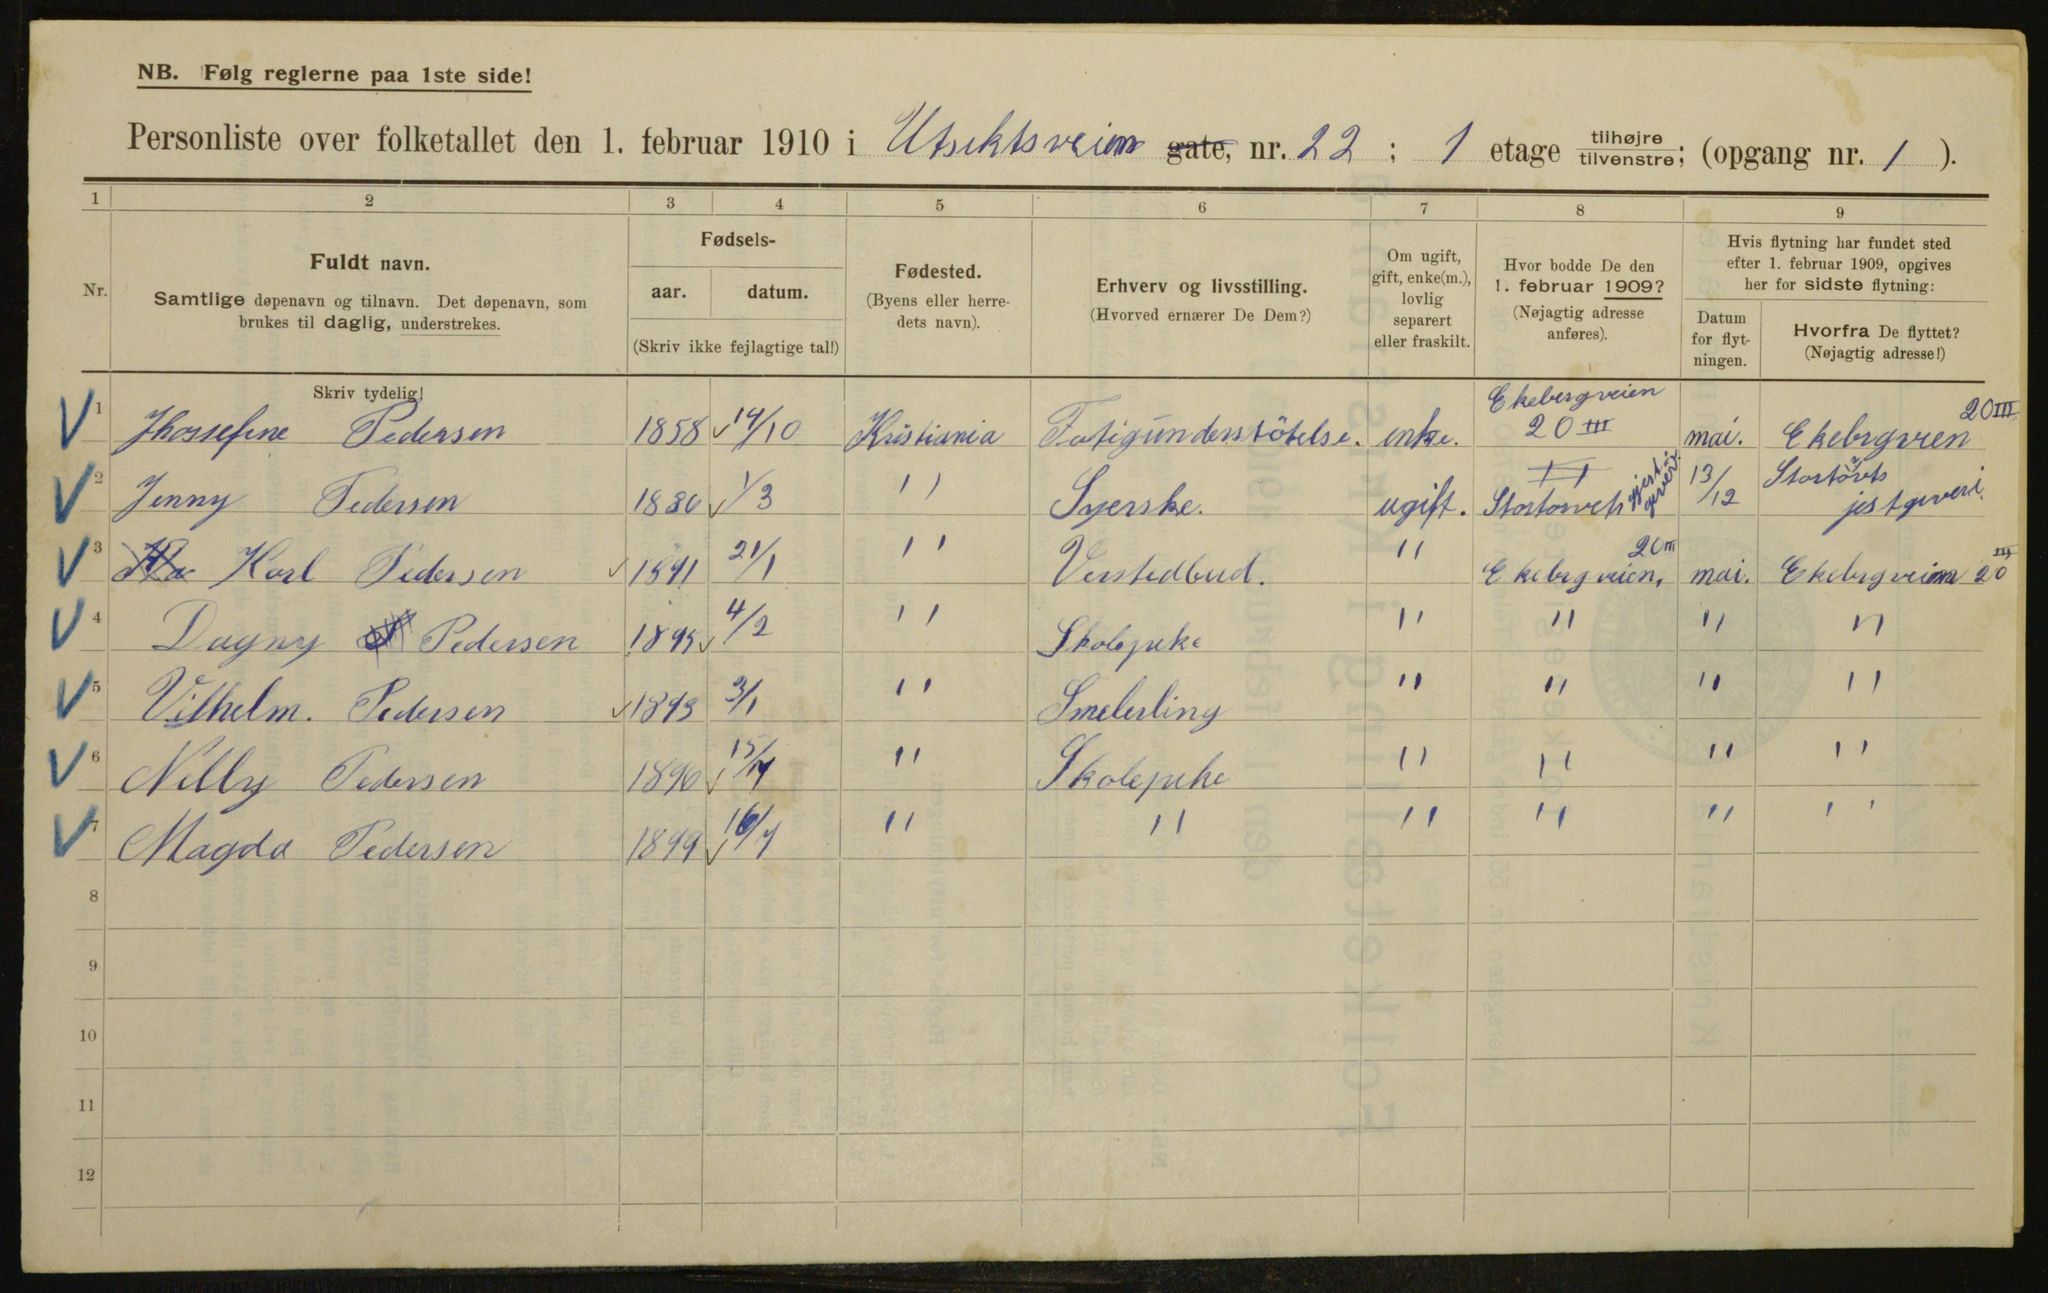 NB. Følg reglerne paa 1ste side!
Personliste over folketallet den 1. februar 1910 i Utsiktsveien gate, nr. 22 ; 1 etage tilhøjre tilvenstre; (opgang nr. 1 ).
1 2 3 4 5 6 7 8 9
Nr.
Fuldt navn.
Samtlige døpenavn og tilnavn. Det døpenavn, som
brukes til daglig, understrekes.
Skriv tydelig!
Fødsels-
aar. datum.
(Skriv ikke fejlagtige tal!)
Fødested.
(Byens eller herre-
dets navn).
Erhverv og livsstilling.
(Hvorved ernærer De Dem?)
Om ugift,
gift, enke(m.),
lovlig
separert
eller fraskilt.
Hvor bodde De den
1. februar 1909?
(Nøjagtig adresse
anføres).
Hvis flytning har fundet sted
efter 1. februar 1909, opgives
her for sidste flytning:
Datum
for flyt-
ningen.
Hvorfra De flyttet?
(Nøjagtig adresse!)
1 Jhossefine Pedersen 1858 14/10 Kristiania Fatigunderstötelse. enke. Ekebergveien 20 III mai. Ekebrgveien 20 III
2 Jenny Pedersen 1880 1/3 " Syerske. ugift. Stortorvets jestgiveri. 13/12 Stortörvts jestgiveri.
3 Karl Pedersen 1891 21/1 " Verstedbud. " Ekebrgveien, 20 III mai. Ekebrgveien 20 III
4 Dagny Pedersen 1895 4/2 " Skolepike " " " "
5 Vilhelm. Pedersen 1893 3/1 " Smelerling " " " "
6 Nelly Pedersen 1896 15/4 " Skolepike " " " "
7 Magda Pedersen 1899 16/4 " " " " " "
8
9
10
11
12